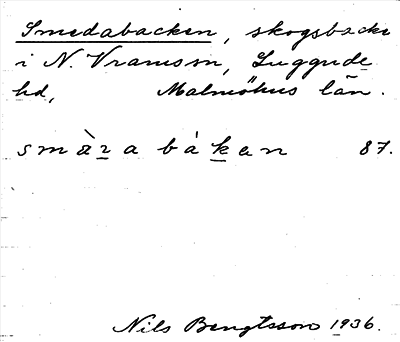 Smedabacken, skogsbacke
i N. Vramsm, Luggude
hd, Malmöhus län.
smàra bákan 87.
Nils Bengtsson 1936.